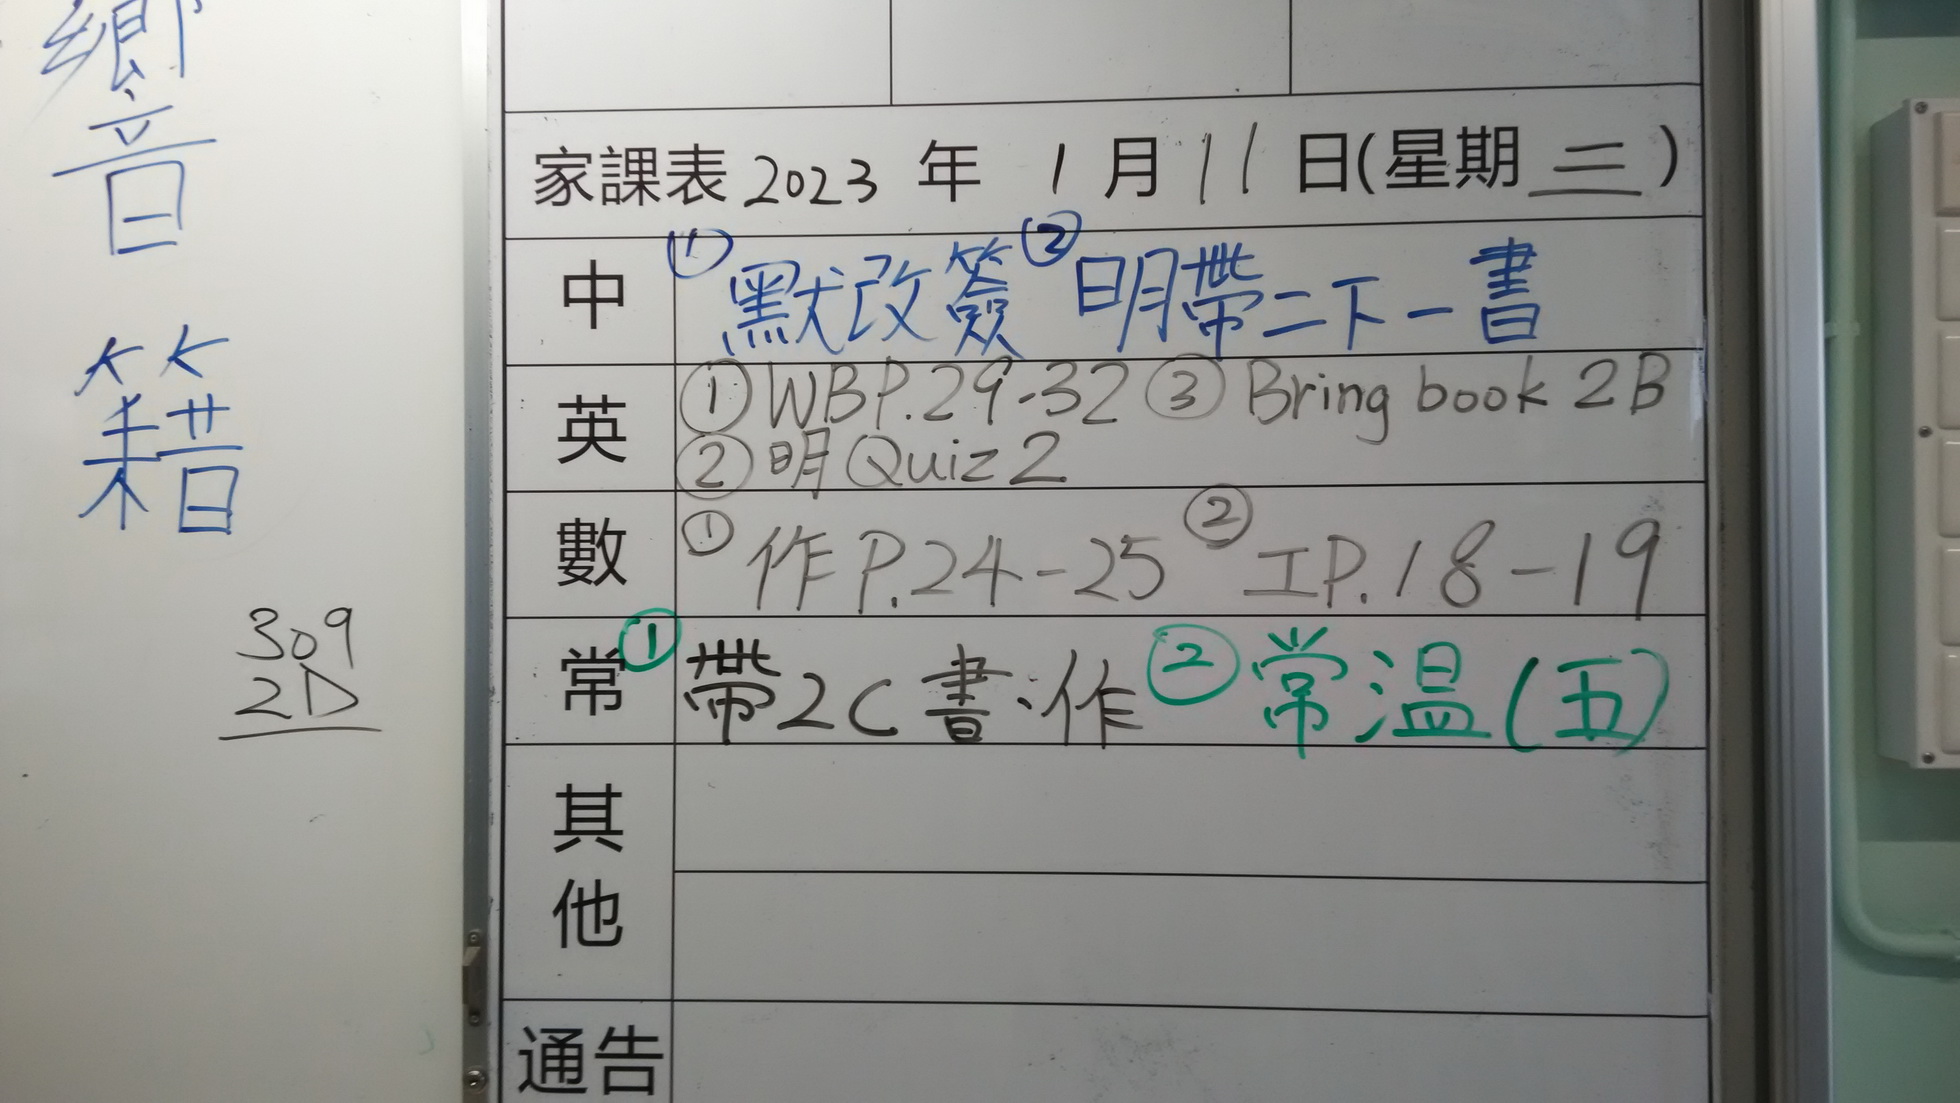 響
音
籍
309
2D
家課表 2023 年 1 月 11 日(星期 三 )
中 ① 默改簽 ② 明帶二下一書
英 ① WB P.29-32 ③ Bring book 2B
② 明 Quiz 2
數 ① 作 P.24-25 ② 工 P.18-19
常 ① 帶2C書、作 ② 常溫(五)
其
他
通告